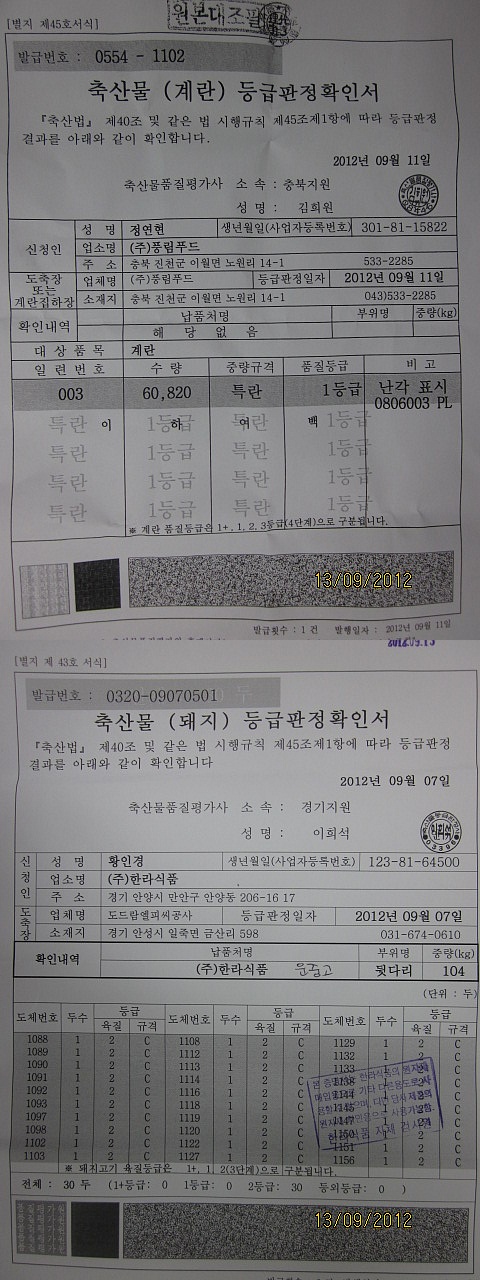 원본대조필
[별지 제45호서식]
발급번호 : 0554 - 1102
축산물 (계란) 등급판정확인서
『축산법』 제40조 및 같은 법 시행규칙 제45조제1항에 따라 등급판정
결과를 아래와 같이 확인합니다.
2012년 09월 11일
축산물품질평가사 소 속 : 충북지원
성 명 : 김희원
신청인 성 명 정연현 생년월일(사업자등록번호) 301-81-15822
업소명 (주)풍림푸드
주 소 충북 진천군 이월면 노원리 14-1 533-2285
도축장 또는 계란집하장 업체명 (주)풍림푸드 등급판정일자 2012년 09월 11일
소재지 충북 진천군 이월면 노원리 14-1 043)533-2285
확인내역 납품처명 부위명 중량(kg)
해 당 없 음
대 상 품 목 계란
일 련 번 호 수 량 중량규격 품질등급 비 고
003 60,820 특란 1등급 난각 표시
0806003 PL
특란 이 1등급 하 특란 여 백 1등급
특란 1등급 특란 1등급
특란 1등급 특란 1등급
특란 1등급 특란 1등급
※ 계란 품질등급은 1+, 1, 2, 3등급(4단계)으로 구분됩니다.
13/09/2012
발급횟수 : 1 건 발행일자 : 2012년 09월 11일
2012.09.13
[별지 제 43호 서식]
발급번호 : 0320-09070501
축산물 (돼지) 등급판정확인서
『축산법』 제40조 및 같은 법 시행규칙 제45조제1항에 따라 등급판정
결과를 아래와 같이 확인합니다
2012년 09월 07일
축산물품질평가사 소 속 : 경기지원
성 명 : 이희석
신청인 성 명 황인경 생년월일(사업자등록번호) 123-81-64500
업소명 (주)한라식품
주 소 경기 안양시 만안구 안양동 206-16 17
도축장 업체명 도드람엘피씨공사 등급판정일자 2012년 09월 07일
소재지 경기 안성시 일죽면 금산리 598 031-674-0610
확인내역 납품처명 부위명 중량(kg)
(주)한라식품 운중고 뒷다리 104
(단위 : 두)
도체번호 두수 등급 도체번호 두수 등급 도체번호 두수 등급
육질 규격 육질 규격 육질 규격
1088 1 2 C 1108 1 2 C 1129 1 2 C
1089 1 2 C 1112 1 2 C 1132 1 2 C
1090 1 2 C 1113 1 2 C 1133 1 2 C
1091 1 2 C 1114 1 2 C 1 2 C
1092 1 2 C 1116 1 2 C 1144 1 2 C
1093 1 2 C 1118 1 2 C 1 2 C
1097 1 2 C 1119 1 2 C 1147 1 2 C
1098 1 2 C 1120 1 2 C 1150 1 2 C
1102 1 2 C 1122 1 2 C 1151 1 2 C
1103 1 2 C 1127 1 2 C 1156 1 2 C
※ 돼지고기 육질등급은 1+, 1, 2(3단계)으로 구분됩니다.
전체 : 30 두 (1+등급: 0 1등급: 0 2등급: 30 등외등급: 0 )
13/09/2012